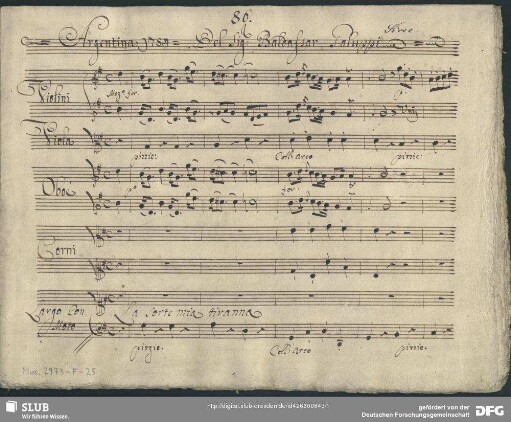 86.
Argentina 1750 Del Sig.r Baldassar Galuppi
Violini
Mez.o for.
Viola
pizzic:
Coll'arco
pizzic:
Oboe
for.
Corni
La sorte mia tiranna
Largo Con
Moto
pizzic.
Coll'Arco
pizzic.
Mus. 2973-F-25
SLUB
Wir führen Wissen.
gefördert von der
Deutschen Forschungsgemeinschaft
DFG